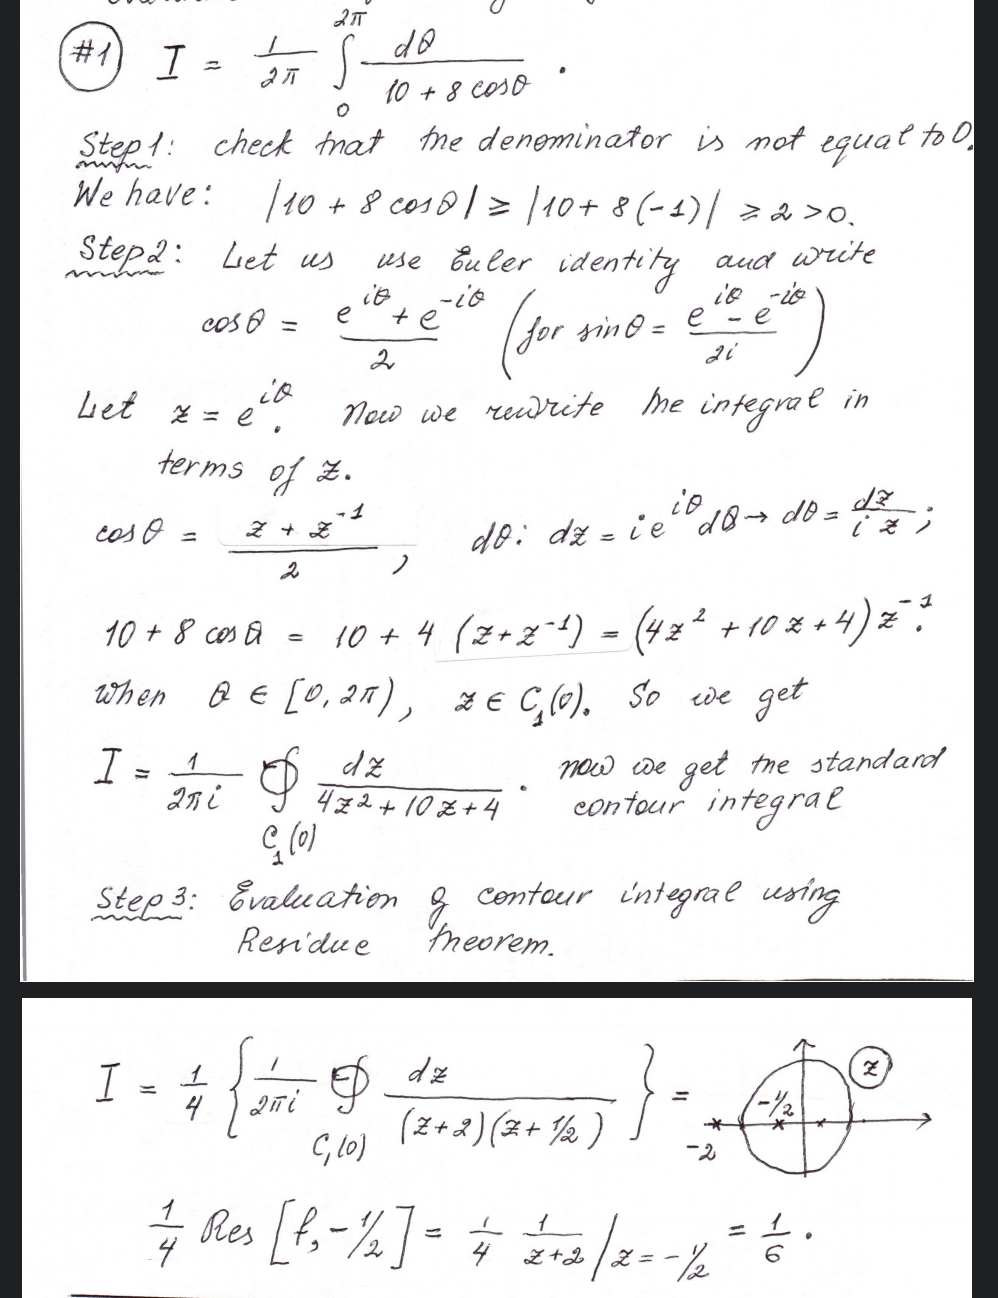 #1 I = 1/2π ∫₀^2π dθ / (10 + 8 cosθ) .
Step 1: check that the denominator is not equal to 0.
We have: |10 + 8 cosθ| ≥ |10 + 8(-1)| ≥ 2 > 0.
Step 2: Let us use Euler identity and write
cosθ = (e^iθ + e^-iθ)/2 (for sinθ = (e^iθ - e^-iθ)/2i)
Let z = e^iθ. Now we rewrite the integral in
terms of z.
cosθ = (z + z^-1)/2 , dθ: dz = ie^iθ dθ → dθ = dz/iz ;
10 + 8 cosθ = 10 + 4 (z + z^-1) = (4z² + 10z + 4) z^-1.
When θ ∈ [0, 2π), z ∈ C₁(0). So we get
I = 1/2πi ∮_C₁(0) dz / (4z² + 10z + 4) . Now we get the standard
contour integral
Step 3: Evaluation of contour integral using
Residue theorem.
I = 1/4 { 1/2πi ∮_C₁(0) dz / ((z+2)(z+1/2)) } =
z
-1/2
-2
1/4 Res [f, -1/2] = 1/4 1/(z+2) | z = -1/2 = 1/6 .